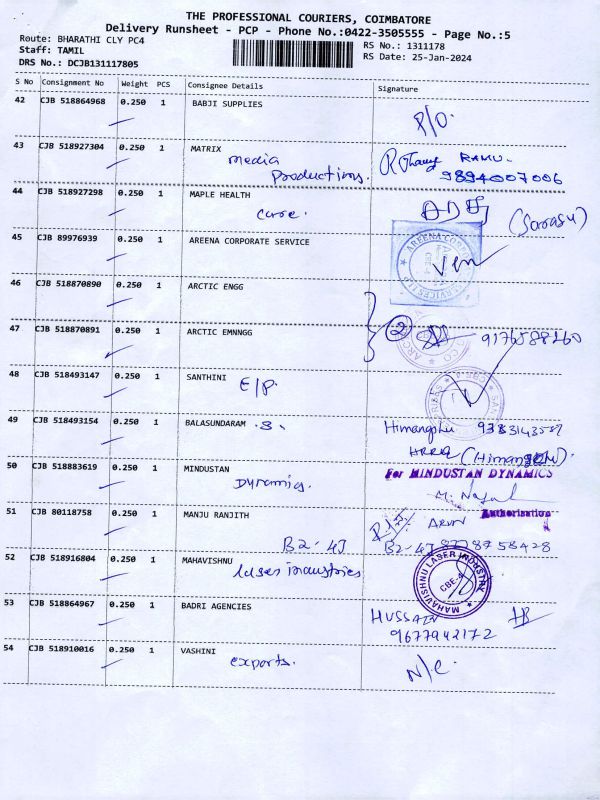 THE PROFESSIONAL COURIERS, COIMBATORE
Delivery Runsheet - PCP - Phone No.:0422-3505555 - Page No.:5
Route: BHARATHI CLY PC4
RS No.: 1311178
Staff: TAMIL
RS Date: 25-Jan-2024
DRS No.: DCJB131117805
S No Consignment No Weight PCS Consignee Details Signature
42 CJB 518864968 0.250 1 BABJI SUPPLIES
P/O.
43 CJB 518927304 0.250 1 MATRIX
media
Productions.
RAMU.
9894007006
44 CJB 518927298 0.250 1 MAPLE HEALTH
care.
45 CJB 89976939 0.250 1 AREENA CORPORATE SERVICE
Ven
46 CJB 518870890 0.250 1 ARCTIC ENGG
47 CJB 518870891 0.250 1 ARCTIC EMNNGG
2
9176588260
48 CJB 518493147 0.250 1 SANTHINI
E/P.
49 CJB 518493154 0.250 1 BALASUNDARAM .S.
Himangshu
50 CJB 518883619 0.250 1 MINDUSTAN
Dynamics.
For HINDUSTAN DYNAMICS
Authorisation
51 CJB 80118758 0.250 1 MANJU RANJITH
ARUN
B2-4J
B2-4J 8778758428
52 CJB 518916804 0.250 1 MAHAVISHNU
laser industries
MAHAVISHNU LASER INDUSTRY
CBE-4
53 CJB 518864967 0.250 1 BADRI AGENCIES
HUSSAIN
9677942172
54 CJB 518910016 0.250 1 VASHINI
exports.
N/C.